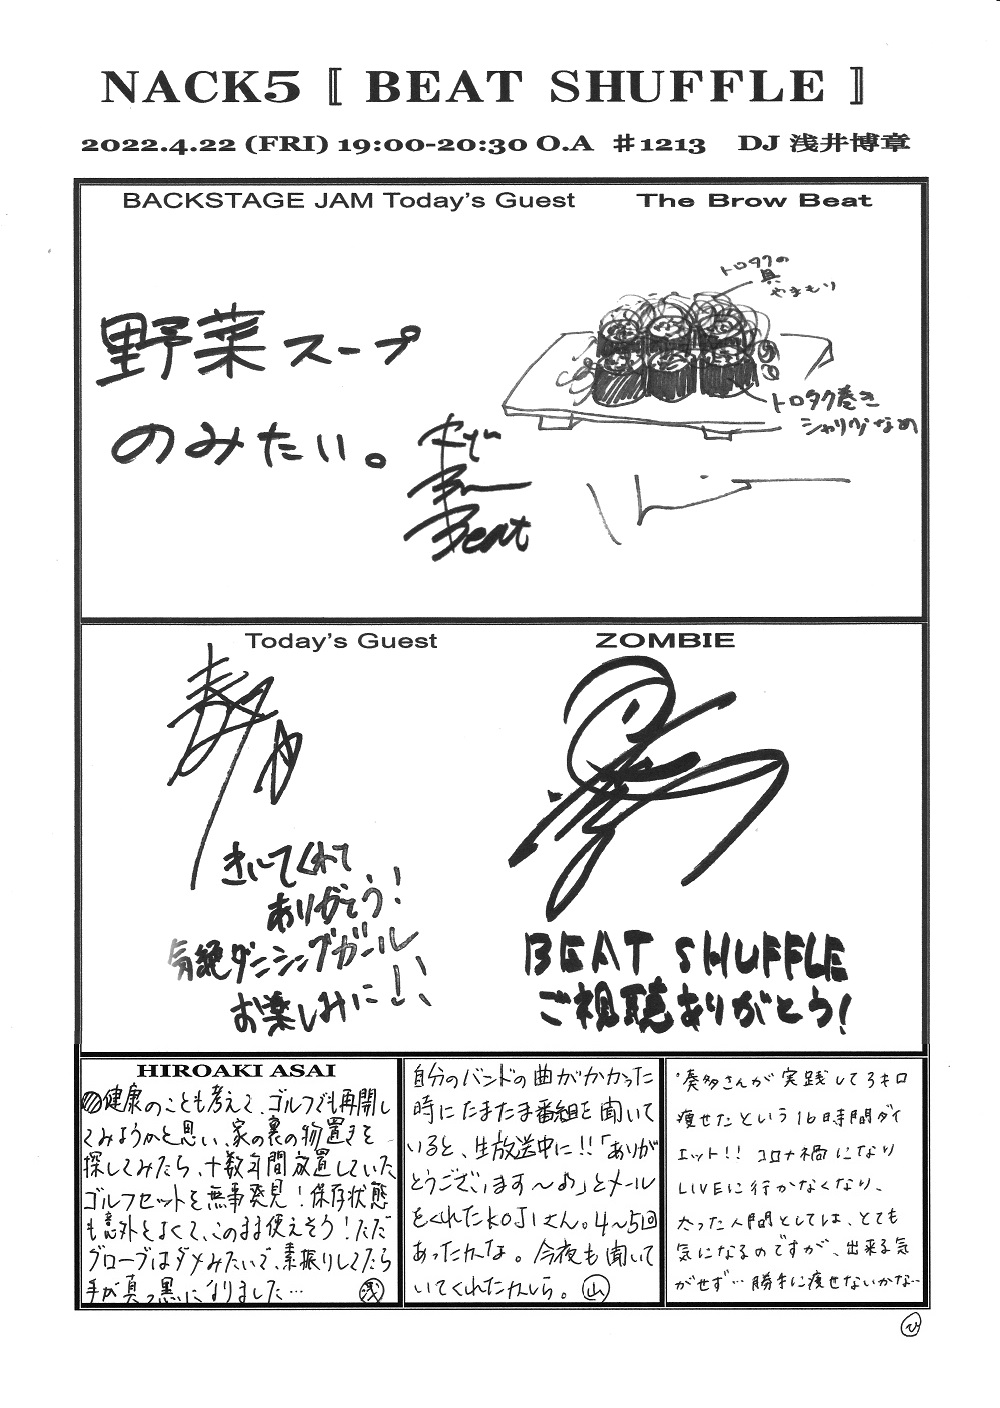 NACK5 〚 BEAT SHUFFLE 〛
2022.4.22 (FRI) 19:00-20:30 O.A ♯1213 DJ 浅井博章
BACKSTAGE JAM Today's Guest The Brow Beat
トロタクの
具
やまもり
野菜スープ
のみたい。
トロタク巻き
シャリ少なめ
Ryu
Brow
Beat
Today's Guest ZOMBIE
きいてくれて
ありがとう!
気絶ダンシングガール
お楽しみに!!
BEAT SHUFFLE
ご視聴ありがとう!
HIROAKI ASAI
健康のことも考えて、ゴルフでも再開し
てみようかと思い、家の裏の物置きを
探してみたら、十数年間放置していた
ゴルフセットを無事発見!保存状態
も意外とよくて、このまま使えそう!ただ
グローブはダメみたいで、素振りしてたら
手が真っ黒になりました… 浅
自分のバンドの曲がかかった
時にたまたま番組を聞いて
いると、生放送中に!!「ありが
とうございます〜」とメール
をくれたKOJIさん。4〜5回
あったかな。今夜も聞いて
いてくれたかしら。山
奏多さんが実践して3キロ
痩せたという16時間ダイ
エット!!コロナ禍になり
LIVEに行かなくなり、
太った人間としては、とても
気になるのですが、出来る気
がせず…勝手に痩せないかな…
ひ